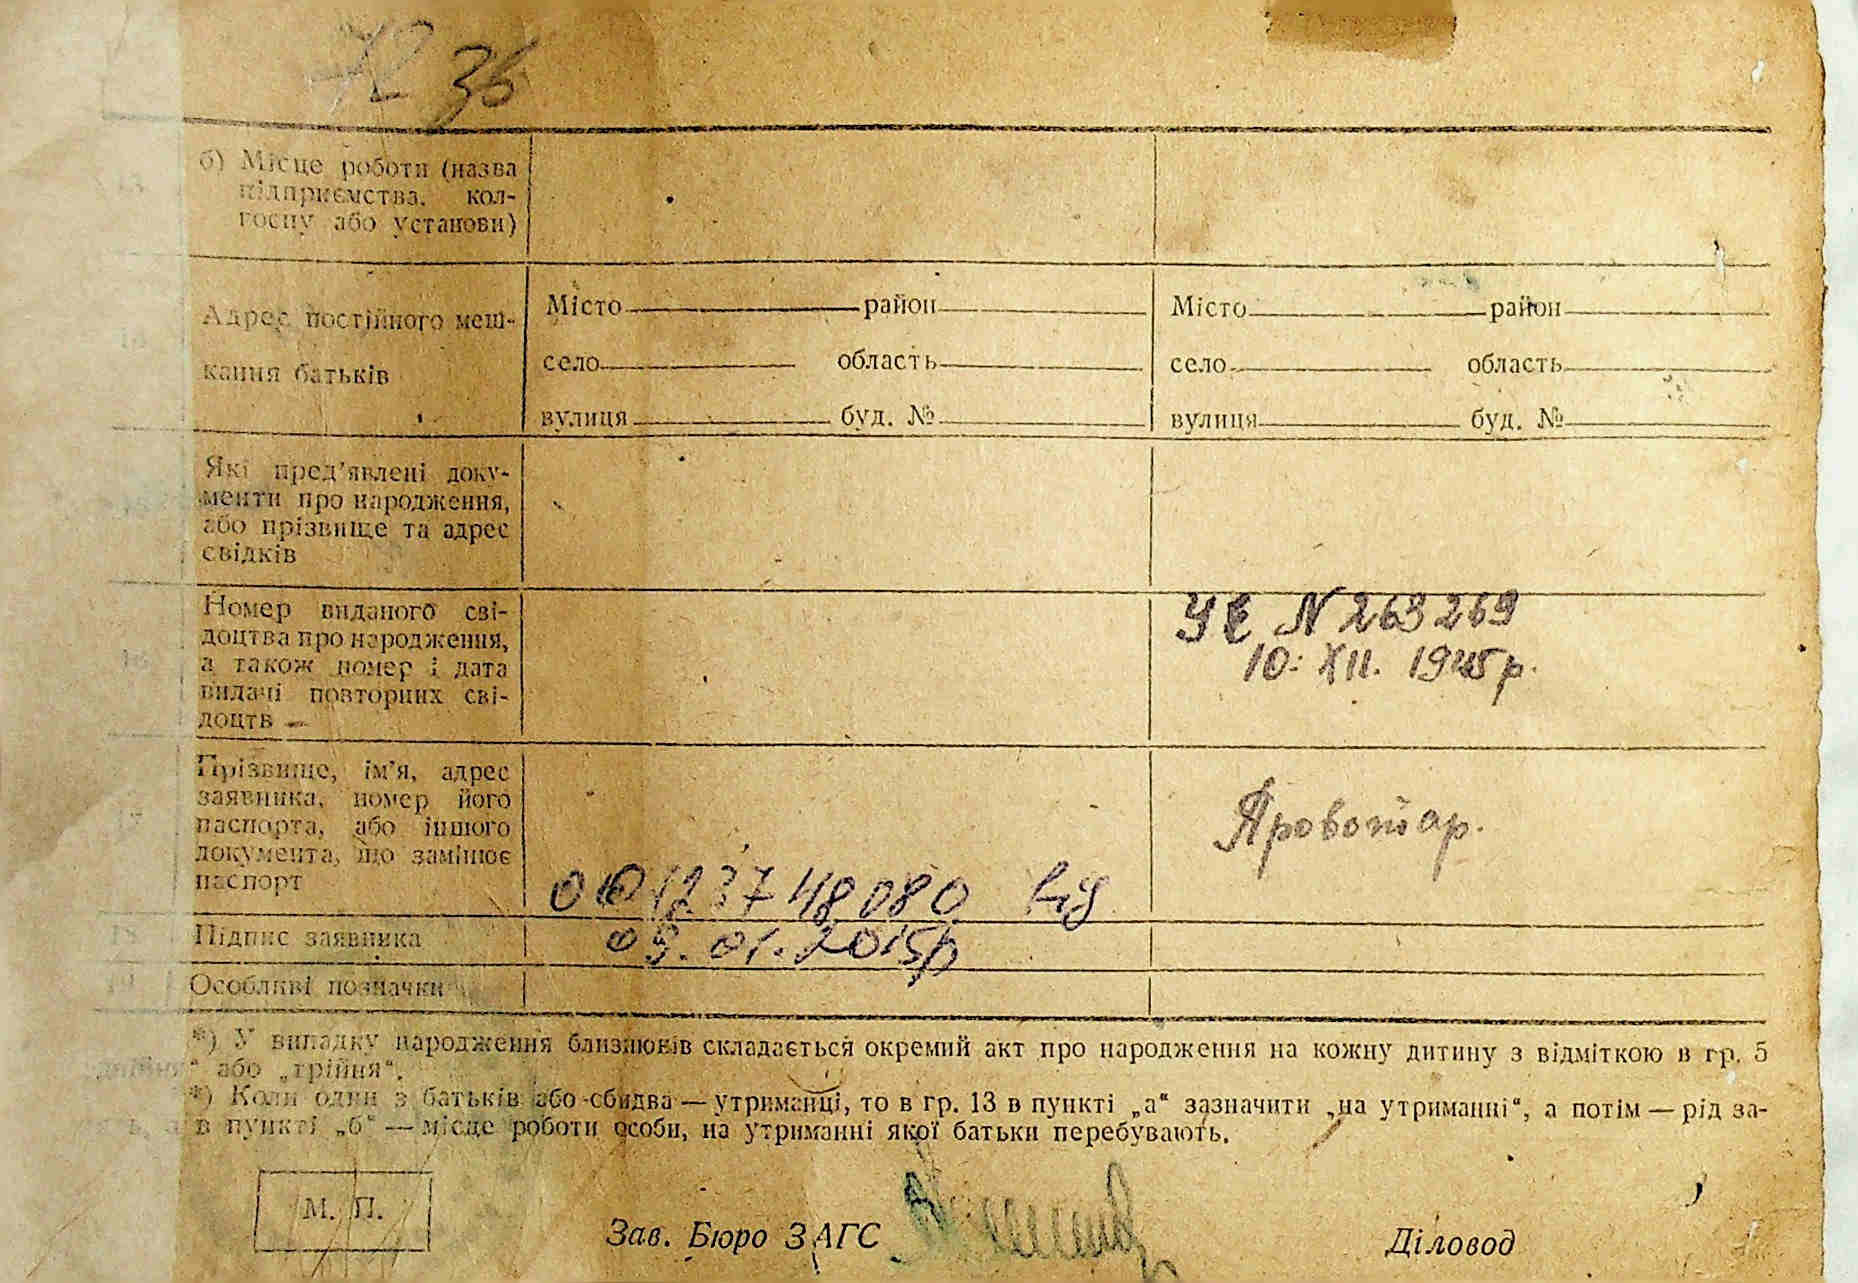 72 36
б) Місце роботи (назва
підприємства, кол-
госпу або установи)
Адрес постійного меш-
кання батьків
Місто район
село область
вулиця буд. №
Місто район
село область
вулиця буд. №
Які пред’явлені доку-
менти про народження,
або прізвище та адрес
свідків
Номер виданого сві-
доцтва про народження,
а також номер і дата
видачі повторних сві-
доцтв —
УЄ N 263269
10. XII. 1945 р.
Прізвище, ім’я, адрес
заявника, номер його
паспорта, або іншого
документа, що замінює
паспорт
00123748080 від
Провотар.
Підпис заявника
09.01.2015р
Особливі позначки
*) У випадку народження близнюків складається окремий акт про народження на кожну дитину з відміткою в гр. 5
“ або „трійня“.
*) Коли один з батьків або обидва — утриманці, то в гр. 13 в пункті „а“ зазначити „на утриманні“, а потім — рід за-
в пункті „б“ — місце роботи особи, на утриманні якої батьки перебувають.
М. П.
Зав. Бюро ЗАГС
Діловод